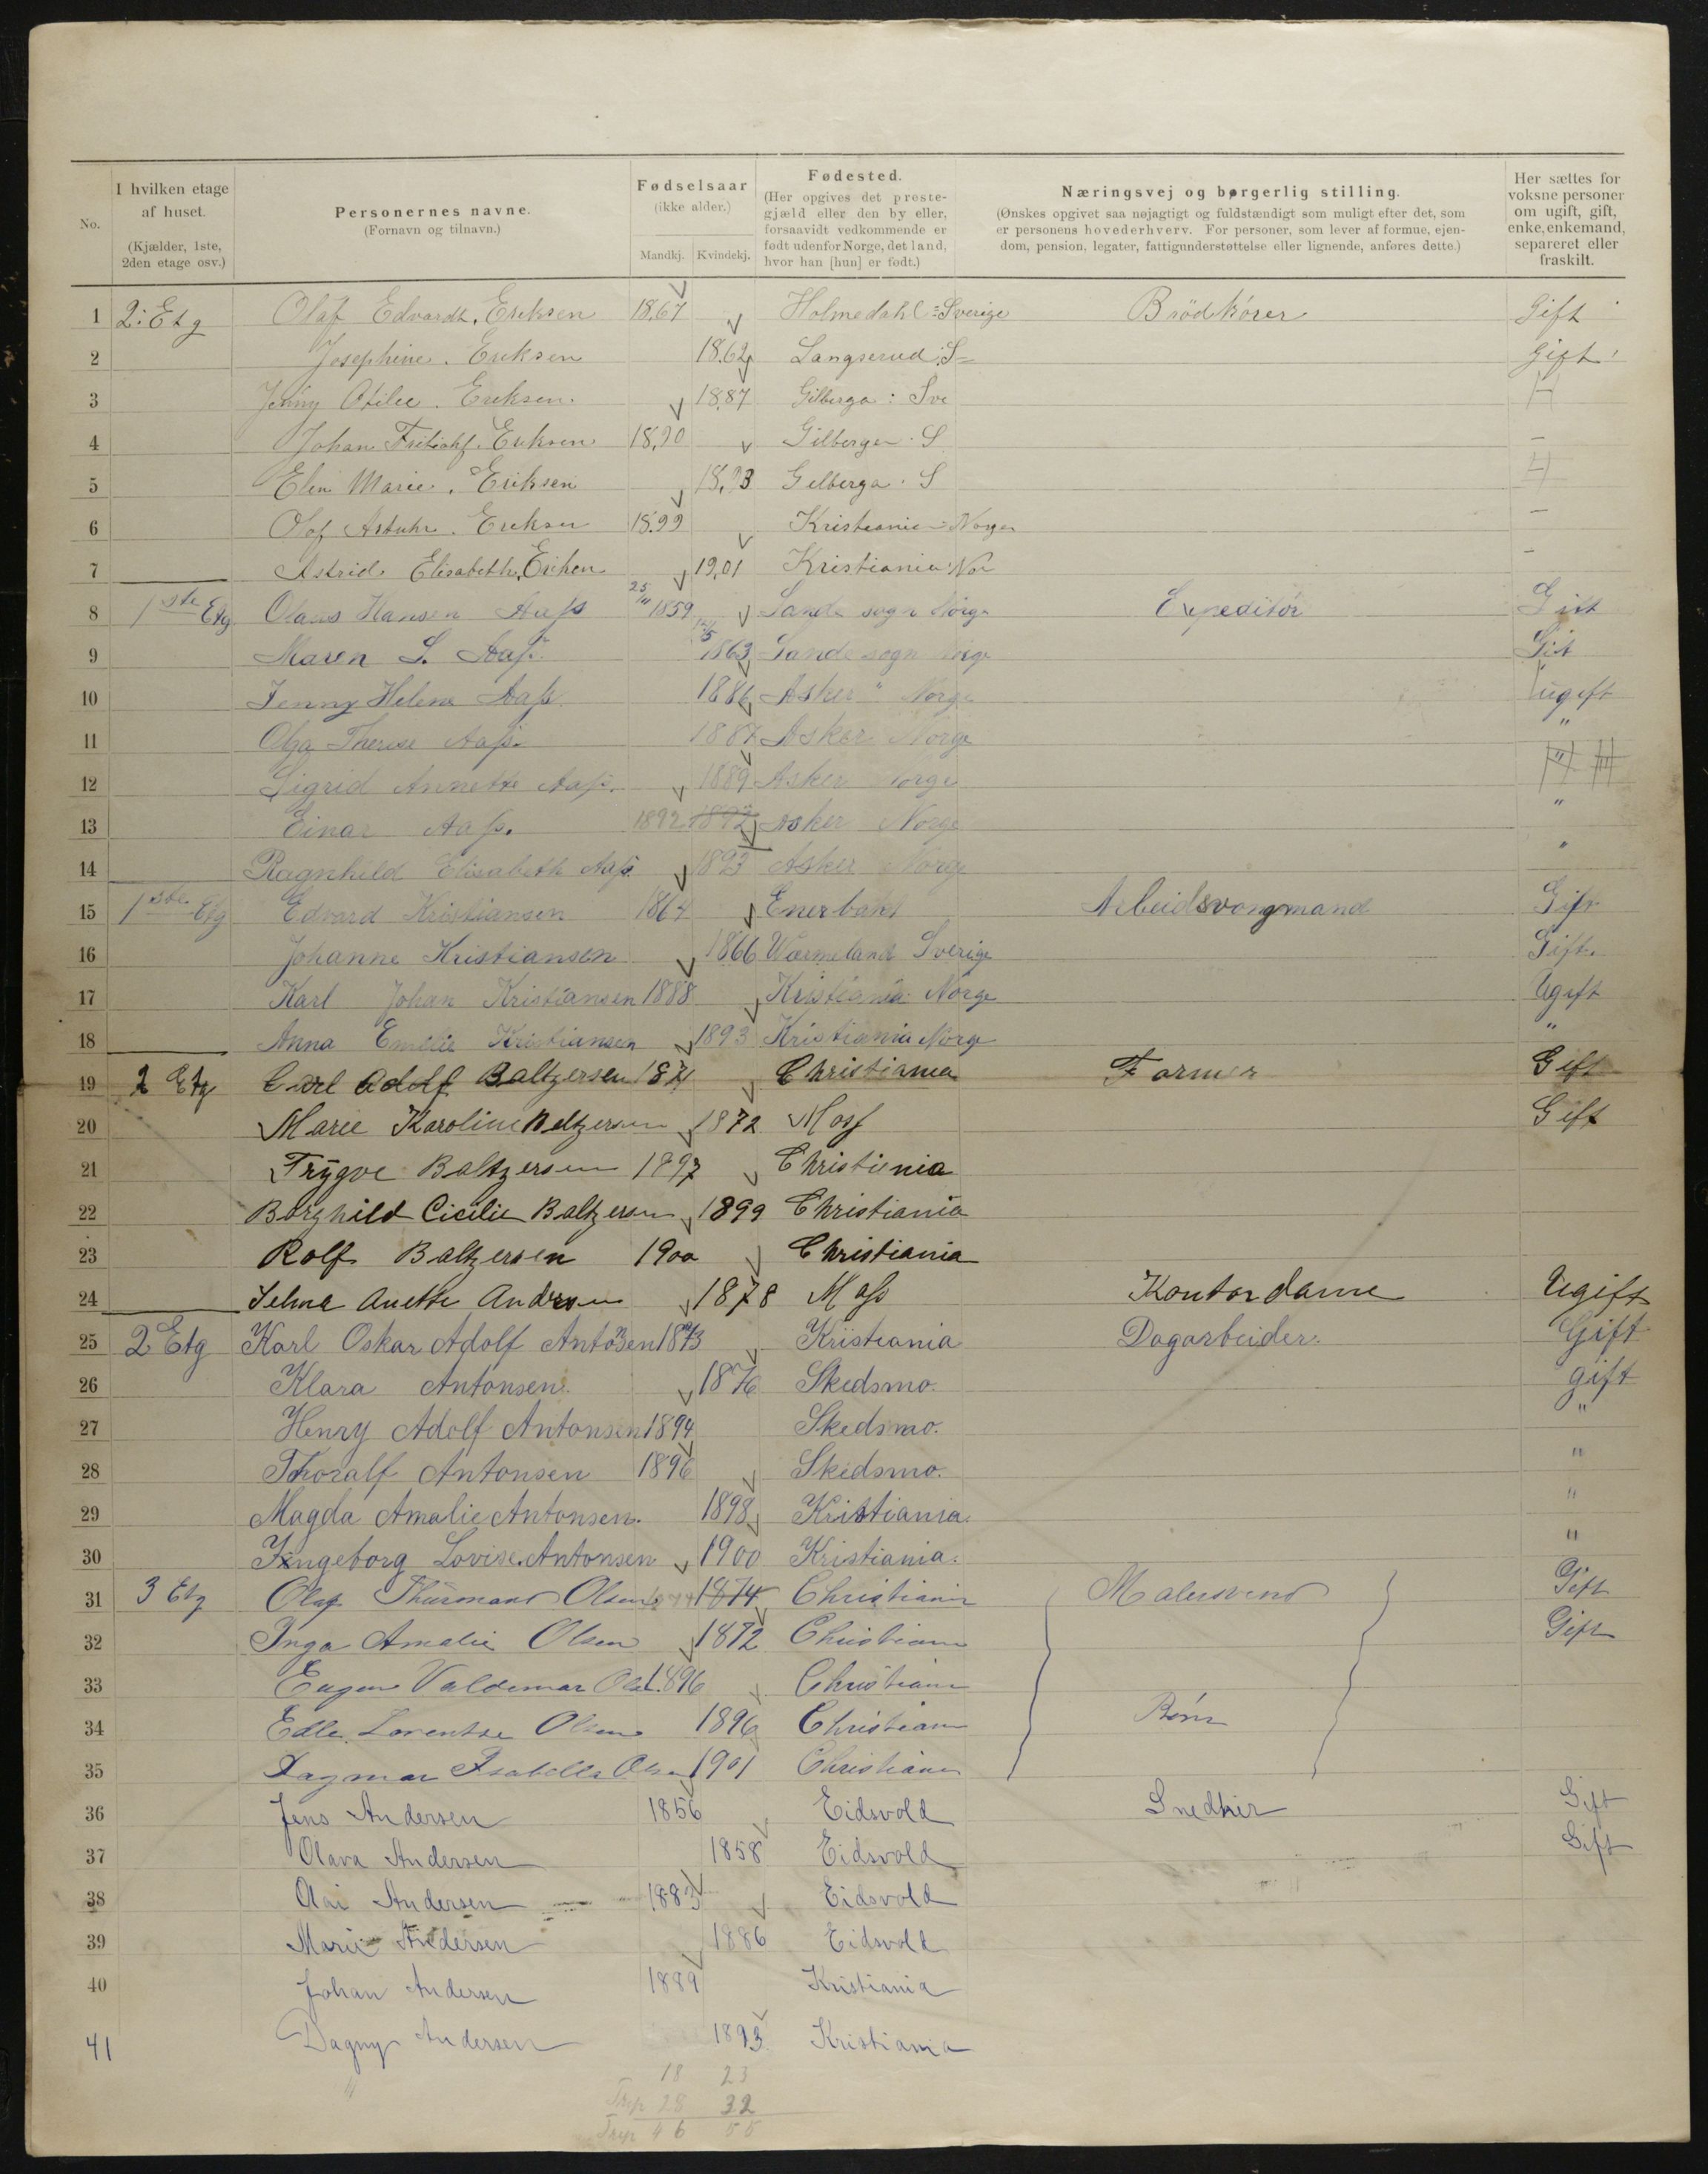 No. I hvilken etage af huset. (Kjælder, 1ste, 2den etage osv.) Personernes navne. (Fornavn og tilnavn.) Fødselsaar (ikke alder.) Mandkj. Kvindekj. Fødested. (Her opgives det prestegjæld eller den by eller, forsaavidt vedkommende er født udenfor Norge, det land, hvor han [hun] er født.) Næringsvej og børgerlig stilling. (Ønskes opgivet saa nøjagtigt og fuldstændigt som muligt efter det, som er personens hovederhverv. For personer, som lever af formue, ejendom, pension, legater, fattigunderstøttelse eller lignende, anføres dette.) Her sættes for voksne personer om ugift, gift, enke, enkemand, separeret eller fraskilt.
1 2: Etg Olaf Edvardt. Eriksen 1867 Holmedahl: Sverige Brödkører Gift
2 Josephine. Eriksen 1862 Langserud: S= Gift
3 Jenny Otilie. Eriksen. 1887 Gilberga: Sve
4 Johan Fritiohf. Eriksen 1890 Gilberga. S –
5 Elin Marie. Eriksen 1893 Gelberga. S
6 Olof Eriksen 1899 Kristiania: Norge –
7 Astrid. Elisabeth. Eriksen 1901 Kristiania: Nor –
8 1ste Etg Olaus Hansen Aass 25/11 1859 Sande sogn Norge Expeditør Gift
9 Maren S. Aass 1863 Sande sogn Norge Gift
10 Jenny Helene Aass 1886 Asker " Norge Ugift
11 Olga Therese Aass. 1887 Asker Norge "
12 Sigrid Annette Aass. 1889 Asker Norge "
13 Einar Aass. 1892 1892 Asker Norge "
14 Ragnhild Elisabeth Aass 1893 Asker Norge "
15 1ste Etg Edvard Kristiansen 1864 Enerbakk Arbeidsvongmand Gift
16 Johanne Kristiansen 1866 Wærmeland Sverige Gift.
17 Karl Johan Kristiansen 1888 Kristiania Norge Ugift
18 Anna Emilie Kristiansen 1893 Kristiania Norge "
19 2 Etg Carl Adolf Baltzersen 1871 Christiania Former Gift
20 Marie Karoline Beltzersen 1872 Moss Gift
21 Trygve Baltzersen 1897 Christienia
22 Borghild Cicilie Baltzersen 1899 Christiania
23 Rolf Baltzersen 1900 Christiania
24 Selma Anette Andersen 1878 Moss Kontordame Ugift
25 2 Etg Karl Oskar Adolf Antonsen 1873 Kristiania Dagarbeider. Gift
26 Klara Antonsen. 1876 Skedsmo. gift
27 Henry Adolf Antonsen 1894 Skedsmo. "
28 Thoralf Antonsen 1896 Skedsmo. "
29 Magda Amalie Antonsen. 1898 Kristiania. "
30 Ingeborg Lovise. Antonsen 1900 Kristiania. "
31 3 Etg Olaf Olsen 1874 1874 Christiania Malersvend Gift
32 Inga Amalie Olsen 1872 Christiania Gift
33 Eugen Valdemar Olsen 1896 Christiania
34 Edle Lorentze Olsen 1896 Christiania Børn
35 Dagmar Isabella Olsen 1901 Christiania
36 Jens Andersen 1856 Eidsvold Snedker Gift
37 Olava Andersen 1858 Eidsvold Gift
38 Olai Andersen 1883 Eidsvold
39 Marie Andersen 1886 Eidsvold
40 Johan Andersen 1889 Kristiania
41 Dagny Andersen 1893 Kristiania
18 23
Trp 28 32
Trp 46 55